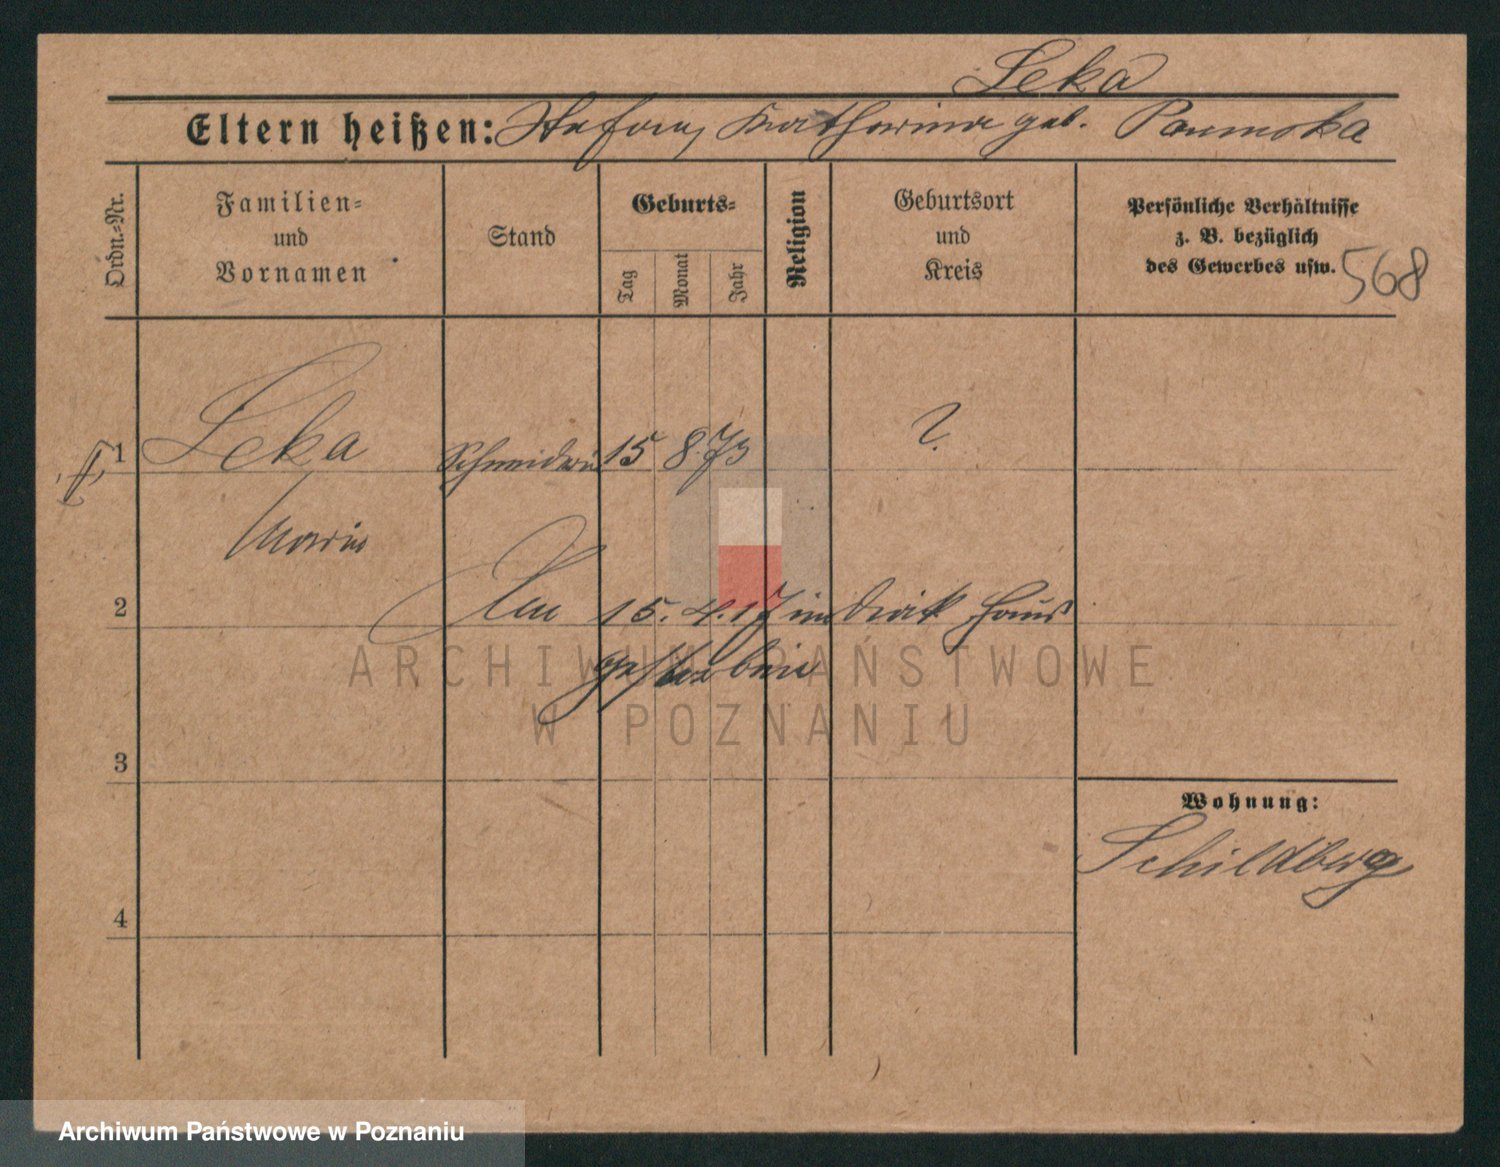 Leka
Eltern heißen: Stefan, Katharina geb.
Ordn.-Nr.
Familien-
und
Vornamen
Stand
Geburts-
Tag
Monat
Jahr
Religion
Geburtsort
und
Kreis
Persönliche Verhältnisse
z. B. bezüglich
des Gewerbes usw.
568
1 Leka Schneiderin 15 8. 73 ?
Maria
2 Am 15. 4. 17 im Haus
gestorben
ARCHIWUM PAŃSTWOWE
W POZNANIU
3
Wohnung:
Schildberg
4
Archiwum Państwowe w Poznaniu